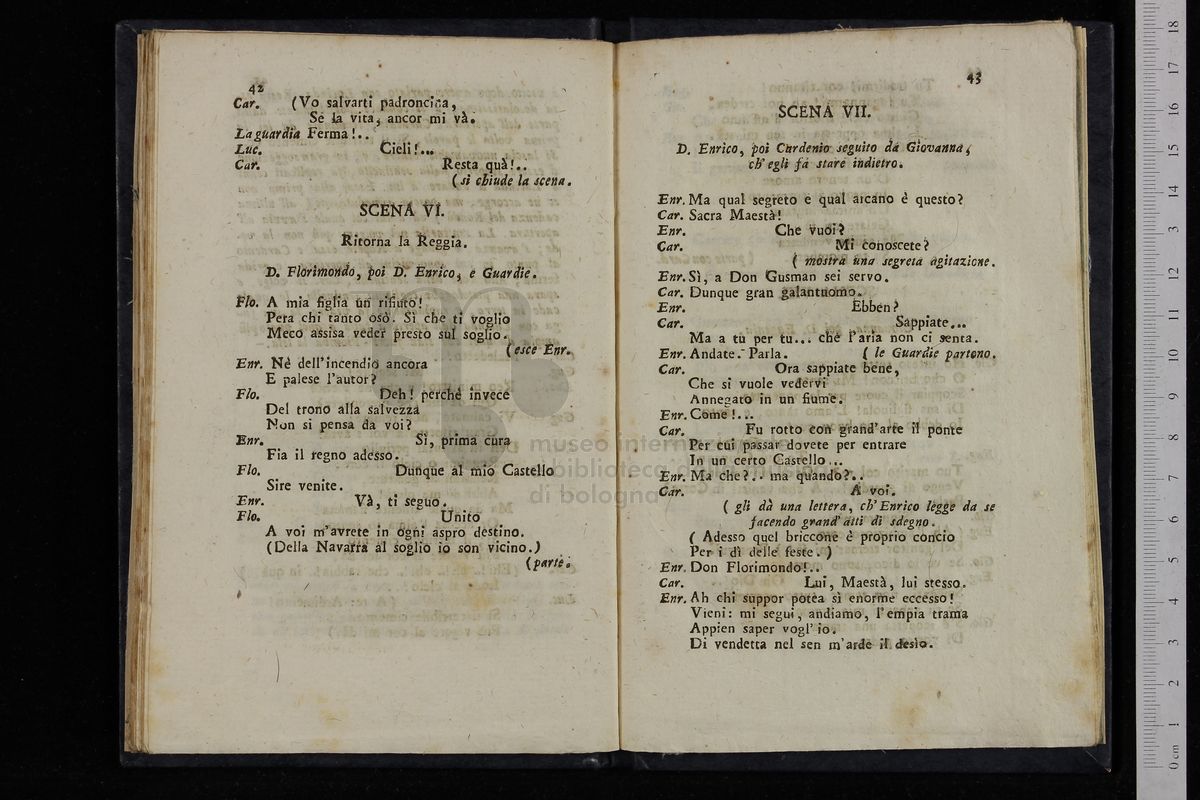 42
Car. (Vo salvarti padroncina,
Se la vita, ancor mi và.
La guardia Ferma!..
Luc. Cieli!...
Car. Resta quà!..
(si chiude la scena.
SCENA VI.
Ritorna la Reggia.
D. Florimondo, poi D. Enrico, e Guardie.
Flo. A mia figlia un rifiuto!
Pera chi tanto osò. Sì che ti voglio
Meco assisa veder presto sul soglio.
(esce Enr.
Enr. Nè dell'incendio ancora
E palese l'autor?
Flo. Deh! perchè invece
Del trono alla salvezza
Non si pensa da voi?
Enr. Sì, prima cura
Fia il regno adesso.
Flo. Dunque al mio Castello
Sire venite.
Enr. Và, ti seguo.
Flo. Unito
A voi m'avrete in ogni aspro destino.
(Della Navarra al soglio io son vicino.)
(parte.
43
SCENA VII.
D. Enrico, poi Cardenio seguito da Giovanna,
ch'egli fà stare indietro.
Enr. Ma qual segreto e qual arcano è questo?
Car. Sacra Maestà!
Enr. Che vuoi?
Car. Mi conoscete?
( mostra una segreta agitazione.
Enr. Sì, a Don Gusman sei servo.
Car. Dunque gran galantuomo.
Enr. Ebben?
Car. Sappiate...
Ma a tu per tu... chè l'aria non ci senta.
Enr. Andate. Parla. ( le Guardie partono.
Car. Ora sappiate bene,
Che si vuole vedervi
Annegato in un fiume.
Enr. Come!...
Car. Fu rotto con grand'arte il ponte
Per cui passar dovete per entrare
In un certo Castello...
Enr. Ma che?.. ma quando?..
Car. A voi.
( gli dà una lettera, ch'Enrico legge da se
facendo grand'atti di sdegno.
( Adesso quel briccone è proprio concio
Per i dì delle feste. )
Enr. Don Florimondo!..
Car. Lui, Maestà, lui stesso.
Enr. Ah chi suppor potea sì enorme eccesso!
Vieni: mi segui, andiamo, l'empia trama
Appien saper vogl'io.
Di vendetta nel sen m'arde il desìo.
museo inter
biblioteca
di bologna
0 cm 1 2 3 4 5 6 7 8 9 10 11 12 13 14 15 16 17 18